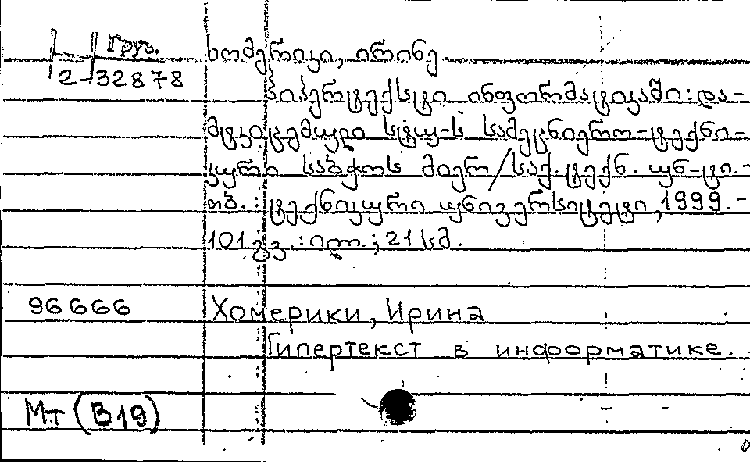 Груз.
2-32878
ხომერიკი, ირინე
ჰიპერტექსტი ინფორმატიკაში: და-
მტკიცებული სტუ-ს სამეცნიერო-ტექნი-
კური საბჭოს მიერ/საქ. ტექნ. უნ-ტი.-
თბ.: ტექნიკური უნივერსიტეტი, 1999.-
101 გვ.: ილ.; 21 სმ.
96666 Хомерики, Ирина
Гипертекст в информатике.
Мт (В19)